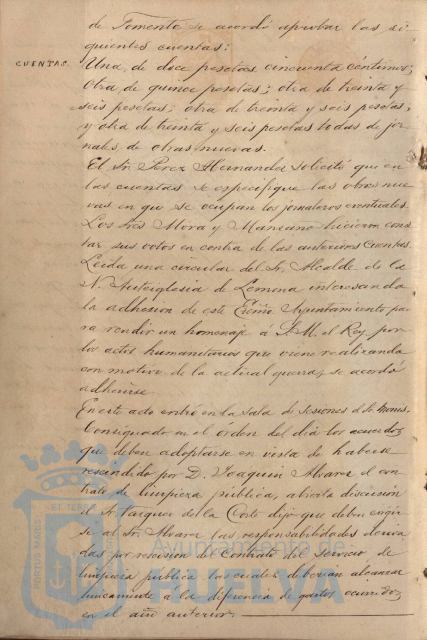 de Fomento se acordó aprobar las si-
guientes cuentas:
CUENTAS. Una de doce pesetas cincuenta centimos;
otra de quince pesetas; otra de treinta y
seis pesetas; otra de treinta y seis pesetas,
y otra de treinta y seis pesetas todas de jor-
nales de obras nuevas.
El Sr. Perez Hernandez solicitó que en
las cuentas se especifique las obras nue-
vas en que se ocupan los jornaleros eventuales.
Los Sres Mora y Manzano hicieron cons-
tar sus votos en contra de las anteriores cuentas.
Leida una circular del Sr. Alcalde de la
N. Anteiglesia de Lemona interesando
la adhesion de este Excmo Ayuntamiento pa-
ra rendir un homenaje á S. M. el Rey, por
los actos humanitarios que viene realizando
con motivo de la actual guerra, se acordó
adherirse.
En este acto entró en la Sala de Sesiones el Sr.
Consignado en el órden del dia los acuerdos
que deben adoptarse en vista de haberse
rescindido por D. Joaquin Alvarez el con-
trato de limpieza pública, abierta discusión
el Sr. Vazquez de la Corte dijo que deben exigir-
se al Sr. Alvarez las responsabilidades deriva-
das por rescision del contrato del servicio de
limpieza pública las cuales deberian alcanzar
unicamente a la diferencia de gastos ocurridos
en el año anterior.
PORTUS MARIS ET TERRAE
Ayuntamiento de
HUELVA